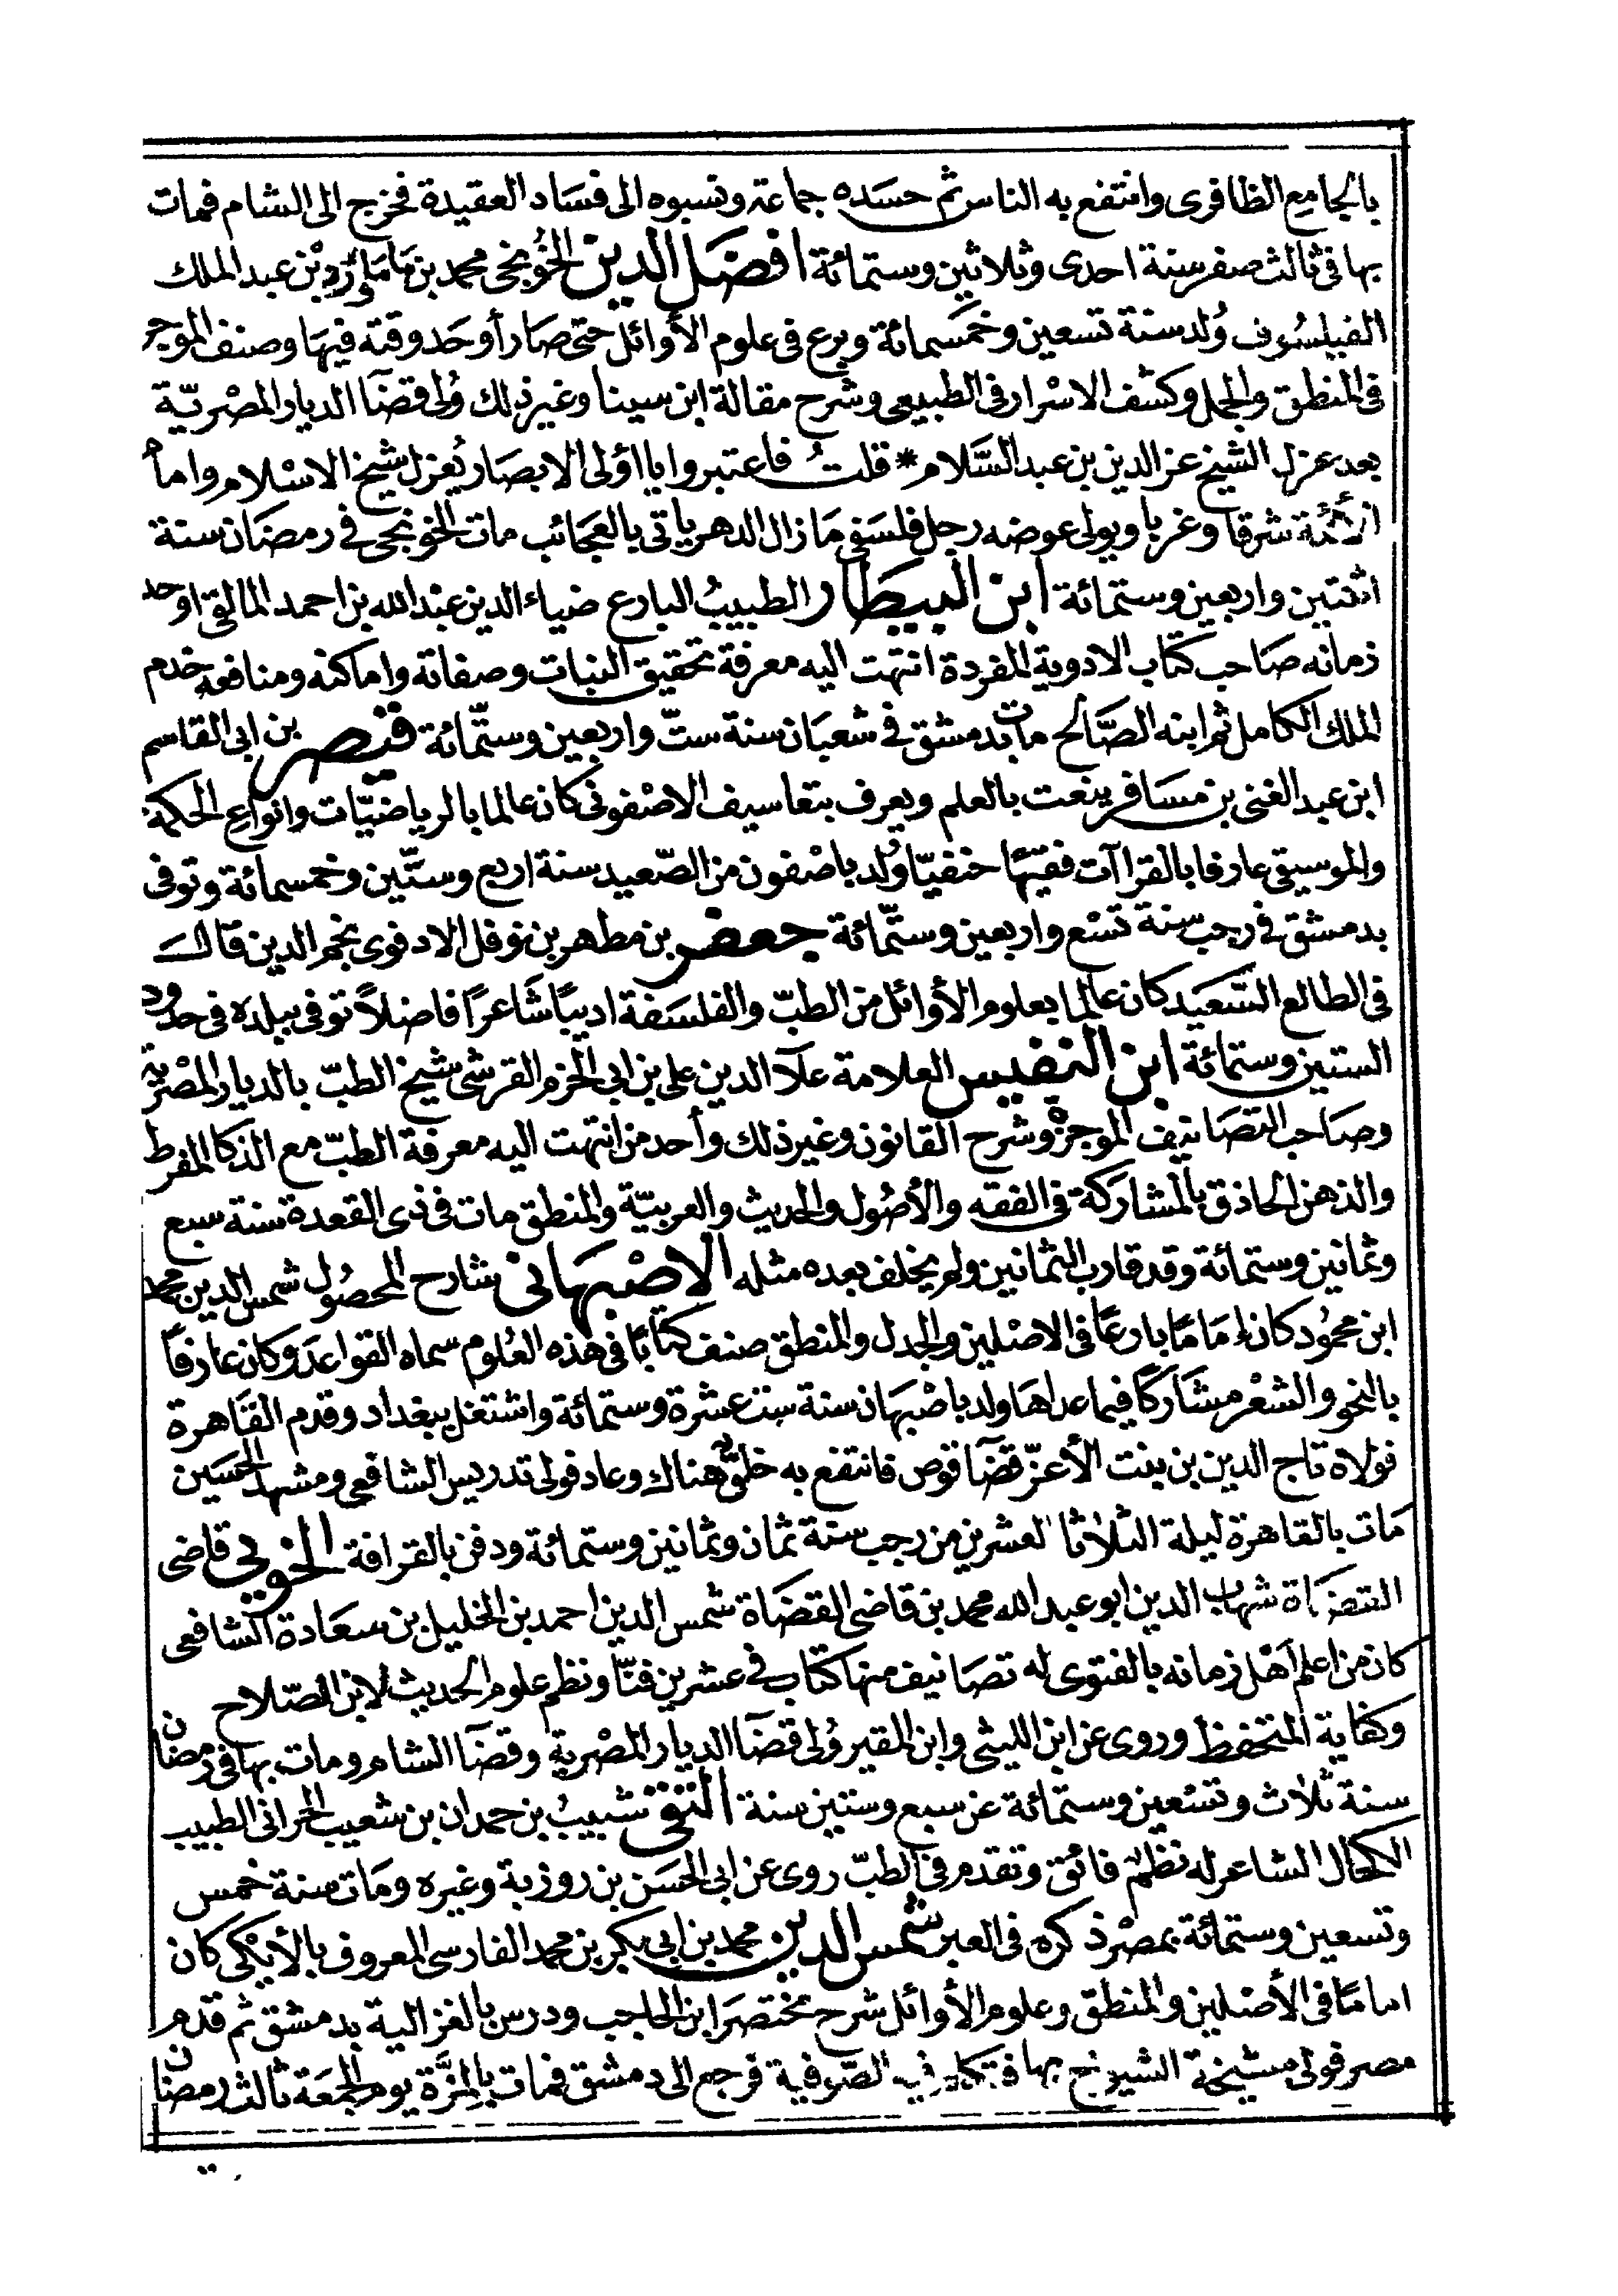 بالجامع الظافرى وانتفع به الناس ثم حسَده جماعة ونسبوه الى فسَاد العقيدة فخرج الى الشام فمات
بها فى ثالث صفر سنة احدى وثلاثين وستمائة افضَل الدين الخُونجى محمد بن نامَاوَرْد بْن عبد الملك
الفيلسُوف وُلد سنة تسعين وخمَسمائة وبرع فى علوم الأوائل حتى صَار أوحَد وقته فيهَا وصنف الموجز
فى المنطق والجمل وكشف الاسْرار فى الطبيعى وشرح مقالة ابن سينا وغير ذلك وُلى قضَآ الديار المصْريّة
بعد عزل الشيخ عز الدين بن عبد السَّلام * قلتُ فاعتبروا يا اولى الابصَار يُعزل شيخ الاسْلام وامام
الائمة شرقا وغربا ويولى عوضه رجل فلسَفى مَا زال الدهر ياتى بالعجَائب مات الخونجى فى رمضَان سنة
اثنتين واربعين وستمائة ابن البيطَار الطبيبُ البارع ضياء الدين عبْد الله بن احمد المالقى اوحد
زمانه صَاحب كتاب الادوية المفردة انتهت اليه معرفة تحقيق النبات وصفاته واماكنه ومنافعه خدم
الملك الكامل ثم ابنه الصَّالح مات بدمشق فى شعبَان سنة ستّ واربعين وستّمائة قيصر بن ابى القاسم
ابن عبد الغنى بن مسَافر ينعت بالعلم ويعرف بتعاسيف الاصْفونى كان عالما بالرياضيّات وانواع الحكمة
والموسيقى عارفا بالقراآت فقيهًا حنفيّا وُلد باصْفون من الصّعيد سنة اربع وستّين وخمسمائة وتوفى
بدمشق فى رجب سنة تسْع واربعين وستّمائة جعفر بن مطهر بن نوفل الادفوى نجم الدين قال
فى الطالع السَّعيد كان عالما بعلوم الأوائل من الطبّ والفلسَفة اديبًا شَاعرًا فاضلاً توفى ببلده فى حدود
الستين وستمائة ابن النفيس العلامة علآ الدين على بن ابى الحزم القرشى شيخ الطبّ بالديار المصْرية
وصَاحب التصَانيف الموجز وشرح القانون وغير ذلك وأحد من انتهت اليه معرفة الطبّ مع الذكا المفرط
والذهن الحاذق بالمشاركة فى الفقه والأصُول والحديث والعربيّة والمنطق مات فى ذى القعدة سنة سبع
وثمانين وستمائة وقد قارب الثمانين ولم يخلف بعده مثله الاصْبهانى شارح المحصُول شمس الدين محمد
ابن محمُود كان إمَامًا بارعًا فى الاصْلين والجدل والمنطق صنف كتَابًا فى هذه العُلوم سماه القواعد وكان عارفاً
بالنحو والشعْر مشَاركًا فيما عداها ولد باصْبهان سنة ست عشرة وستمائة واشتغل ببغداد وقدم القَاهرة
فولاه تاج الدين بن بنت الأعزّ قضَآ قوص فانتفع به خلق هناك وعاد فولى تدريس الشافعى ومشهد الحسَين
مَات بالقاهرة ليلة الثلاثا العشرين من رجب سنة ثمان وثمانين وستمائة ودفن بالقرافة الخويى قاضى
القضَاة شهاب الدين ابو عبد الله محمد بن قاضى القضَاة شمس الدين احمد بن الخليل بن سعَادة الشافعى
كان من اعلم اهْل زمانه بالفتوى له تصَانيف منها كتاب فى عشرين فنّا ونظم علوم الحديث لابن الصّلاح
وكفاية المتحفظ وروى عن ابن الليثى وابن المقير وُلى قضَآ الديار المصْرية وقضَآ الشام ومات بها فى رمضان
سنة ثلاث وتسْعين وستمائة عن سبع وستين سنة التقى شبيبُ بن حمدان بن شعيب الحرانى الطبيب
الكحال الشاعر له نظم فائق وتقدم فى الطبّ روى عن ابى الحَسَن بن روزبة وغيره ومَات سنة خمس
وتسعين وستمائة بمصْر ذكره فى العبر شمس الدين محمد بن ابى بكر بن محمد الفارسى المعروف بالأيْكى كان
امامًا فى الأصْلين والمنطق وعلوم الأوائل شرح مختصَر ابن الحاجب ودرس بالغزالية بدمشق ثم قدم
مصر فولى مشيخة الشيوخ بها فتكلم فيه الصّوفية فرجع الى دمشق فمات بالمزَّة يوم الجمعَة ثالث رمضان